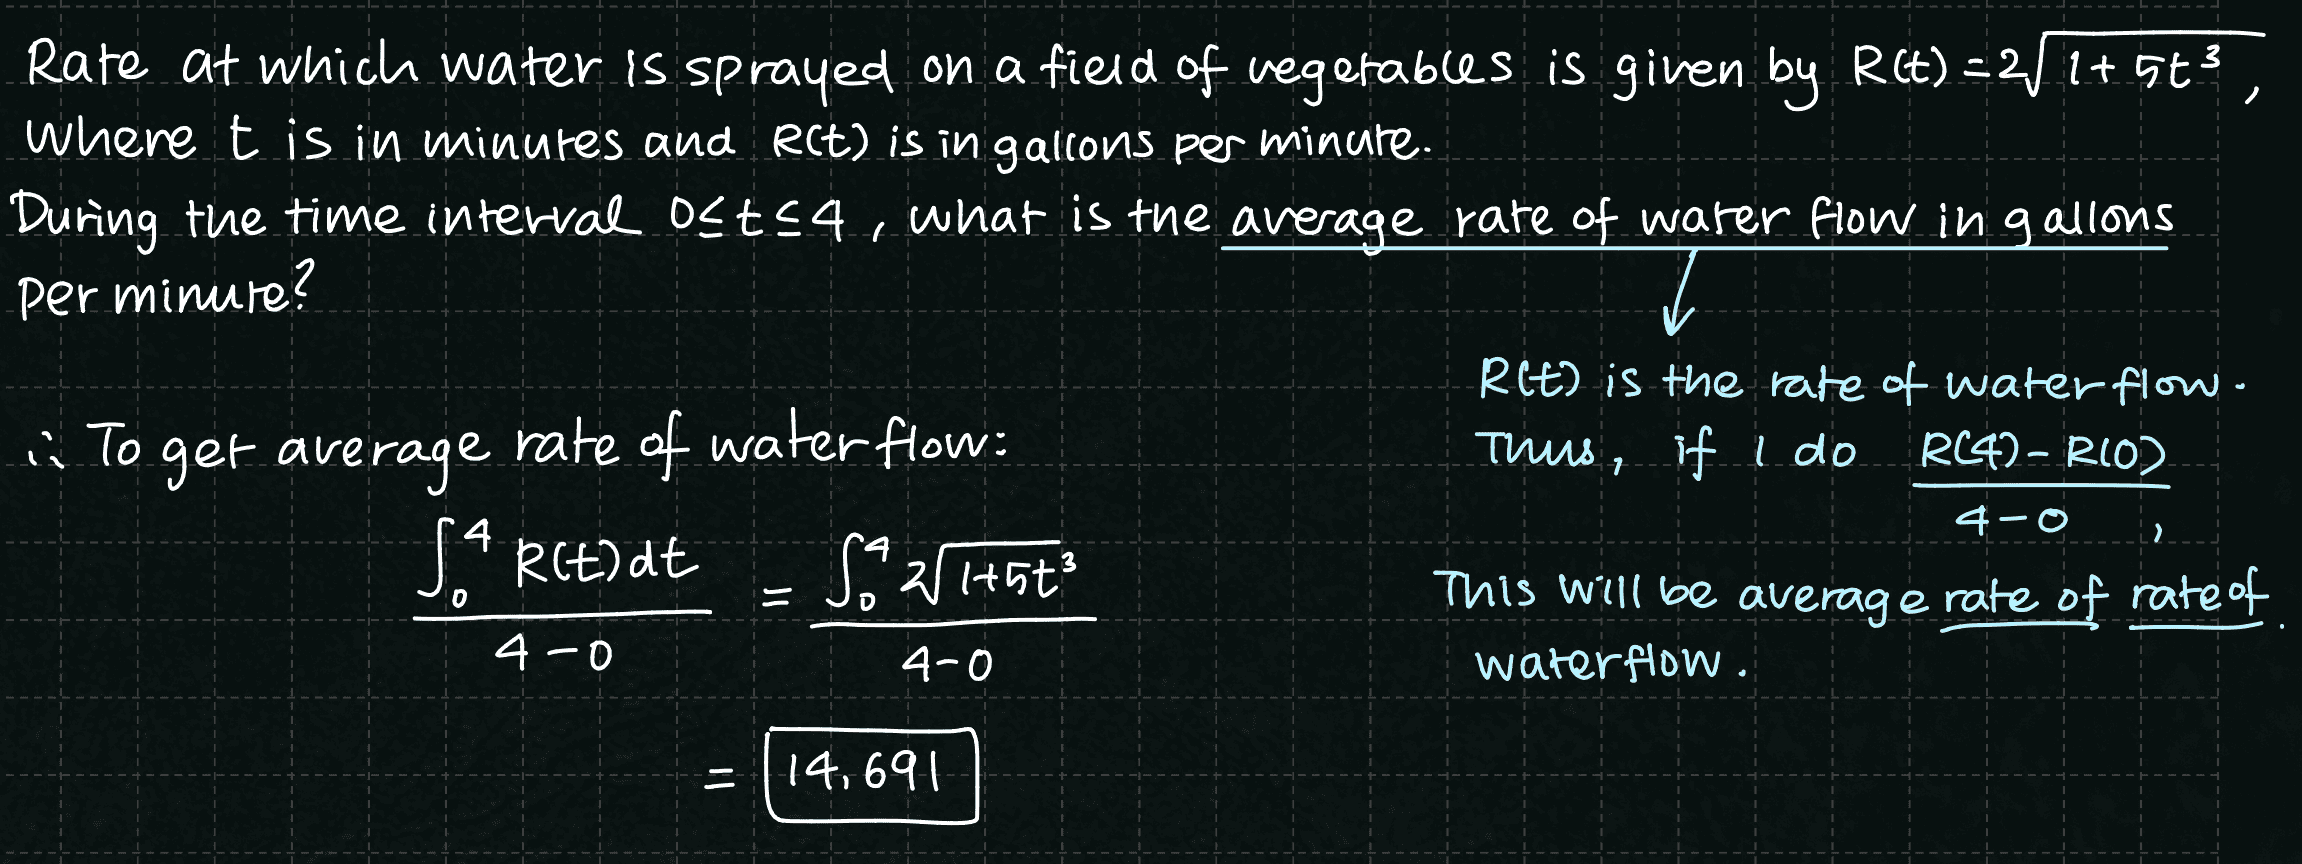 Rate at which water is sprayed on a field of vegetables is given by R(t) = 2√(1 + 5t³),
where t is in minutes and R(t) is in gallons per minute.
During the time interval 0 ≤ t ≤ 4, what is the average rate of water flow in gallons
per minute?
R(t) is the rate of water flow.
Thus, if I do (R(4) - R(0))/(4 - 0),
This will be average rate of rate of
waterflow.
∴ To get average rate of water flow:
(∫₀⁴ R(t) dt)/(4 - 0) = (∫₀⁴ 2√(1+5t³))/(4-0)
= 14,691